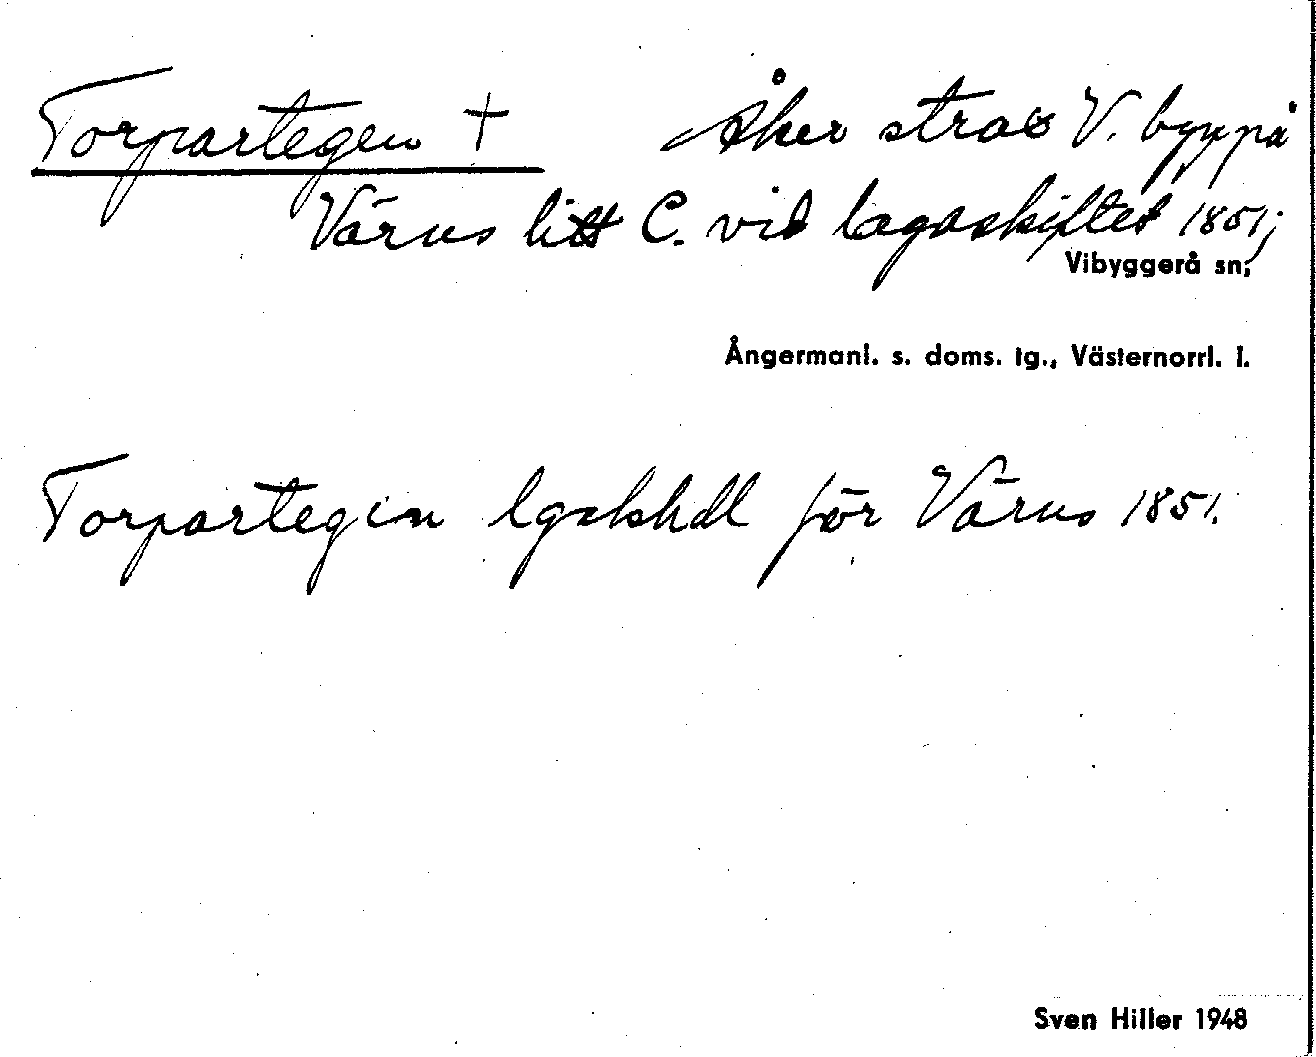 Torpartegen † Åker strax V. byn på
Värns litt C. vid lagaskiftet 1851;
Vibyggerå sn;
Ångermanl. s. doms. tg., Västernorrl. l.
Torpartegin lgskhdl för Värns 1851.
Sven Hiller 1948